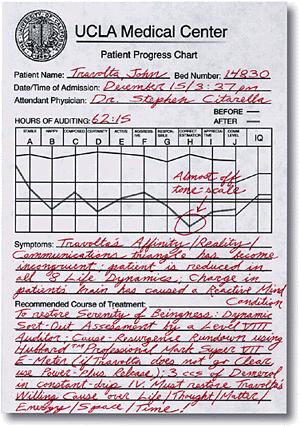 UCLA Medical Center
Patient Progress Chart
Patient Name: Travolta, John Bed Number: 14830
Date/Time of Admission: December 15/3:37 pm
Attendant Physician: Dr. Stephen Citarella
BEFORE
HOURS OF AUDITING: 62:15 AFTER
STABLE HAPPY COMPOSED CERTAINTY ACTIVE AGGRESSIVE RESPONSIBLE CORRECT ESTIMATION APPRECIATIVE COMM LEVEL IQ
A B C D E F G H I J
Almost off
tone-scale
Symptoms: Travolta's Affinity/Reality/
Communications triangle has become
incongruent; patient is reduced in
all 92 Life Dynamics; Charge in
patient's brain has caused a Reactive Mind
Condition
Recommended Course of Treatment:
To restore Serenity of Beingness: Dynamic
Sort-Out Assessment by a Level VIII
Auditor; Cause-Resurgence Rundown using
Hubbard Professional Mark Super VII
E-Meter (if Travolta does not go Clear,
use Power-Plus Release); 3 ccs of Demerol
in constant-drip IV. Must restore Travolta's
Willing Cause over Life/Thought/Matter/
Energy/Space/Time.